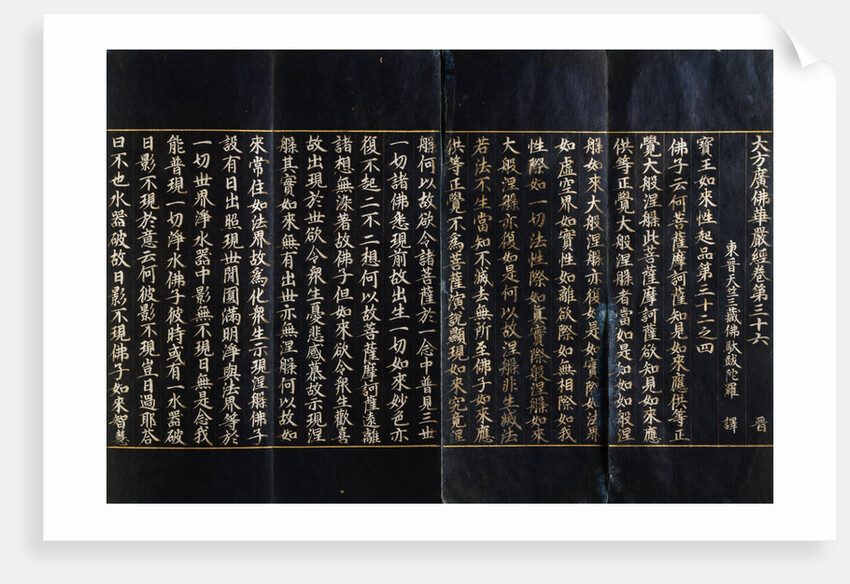 大方廣佛華嚴經卷第三十六 晉
東晉天竺三藏佛馱跋陀羅 譯
寶王如來性起品第三十二之四
佛子云何菩薩摩訶薩知見如來應供等正
覺大般涅槃此菩薩摩訶薩欲知見如來應
供等正覺大般涅槃者當如是知如如般涅
槃如來大般涅槃亦復如是如實際如法界
如虛空界如實性如離欲際如無相際如我
性際如一切法性際如真實際般涅槃如來
大般涅槃亦復如是何以故涅槃非生滅法
若法不生當知不滅去無所至佛子如來應
供等正覺不為菩薩演說顯現如來究竟涅
槃何以故欲令諸菩薩於一念中普見三世
一切諸佛悉現前故出生一切如來妙色亦
復不起二不二想何以故菩薩摩訶薩遠離
諸想無染著故佛子但如來欲令眾生歡喜
故出現於世欲令眾生憂悲感慕故示現涅
槃其實如來無有出世亦無涅槃何以故如
來常住如法界故為化眾生示現涅槃佛子
設有日出照現世間圓滿明淨與法界等於
一切世界淨水器中影無不現日無是念我
能普現一切淨水佛子彼時或有一水器破
日影不現於意云何彼影不現豈日過耶答
曰不也水器破故日影不現佛子如來智慧